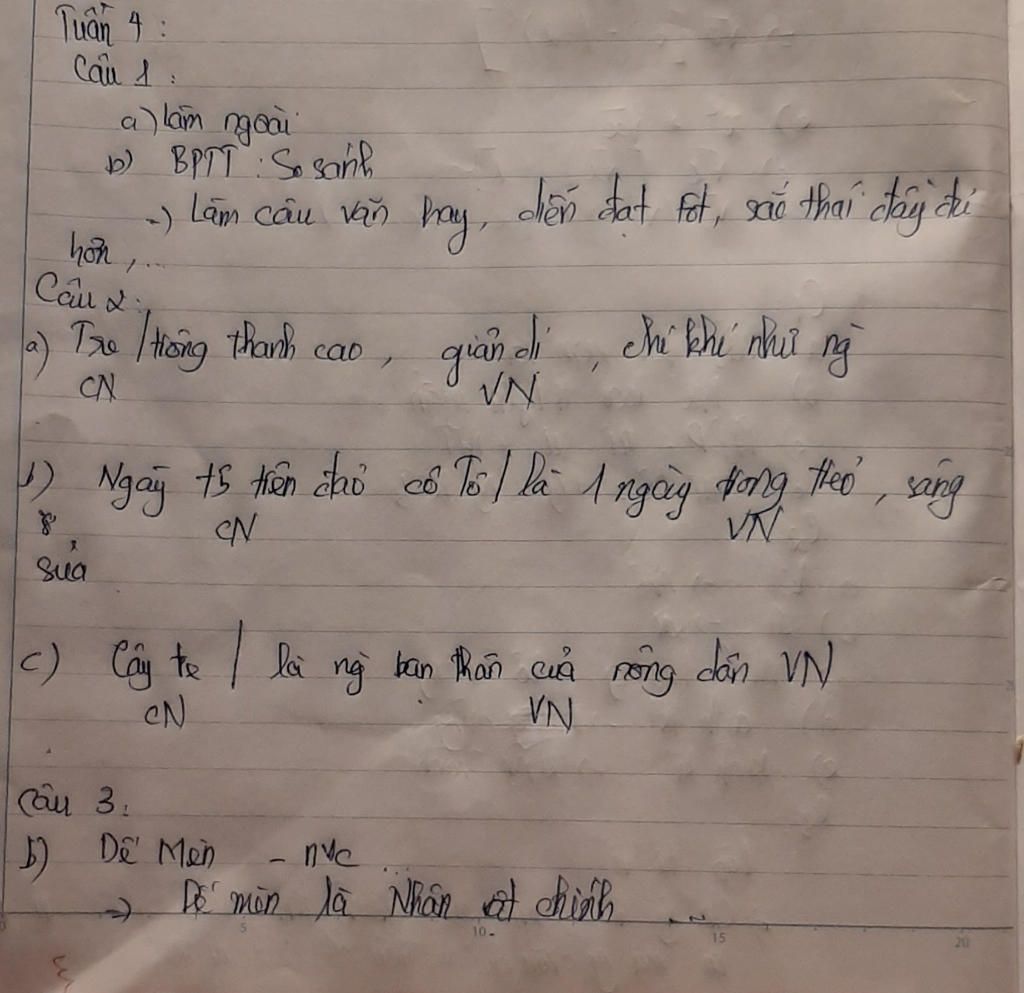 Tuần 4 :
Câu 1 :
a) làm ngoài
b) BPTT : So sánh
-> Làm câu văn hay, diễn đạt tốt, sắc thái đầy đủ
hơn, ...
Câu 2 :
a) Tre / trông thanh cao, giản dị, chí khí như ng
CN VN
b) Ngày t5 trên đảo cô Tô / là 1 ngày trong trẻo, sáng
CN VN
sủa
c) Cây tre / là ng bạn thân của nông dân VN
CN VN
Câu 3 :
b) Dế Mèn - nvc ...
-> Dế mèn là Nhân vật chính
5 10 15 20